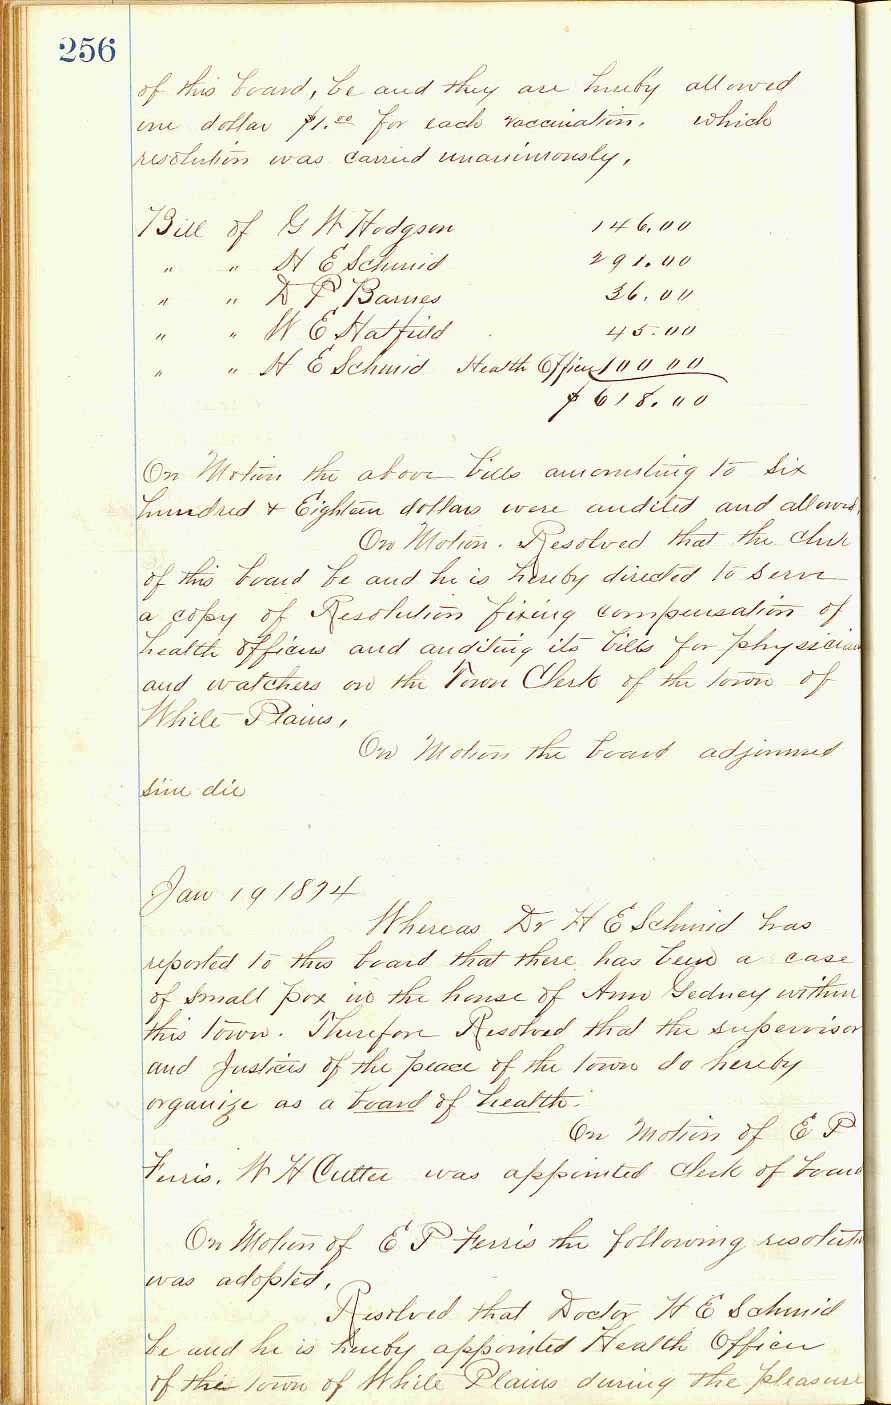 256
of this board, be and they are hereby allowed
one dollar $1.00 for each vaccination. which
resolution was carried unanimously,
Bill of G W Hodgson 146.00
" " H E Schmid 291.00
" " D P Barnes 36.00
" " W E Hatfield 45.00
" " H E Schmid Health Officer 100 00
$618.00
On Motion the above bills amounting to Six
hundred & Eighteen dollars were audited and allowed,
On Motion. Resolved that the clerk
of this board be and he is hereby directed to serve
a copy of Resolution fixing compensation of
health officers and auditing its bills for physician
and watchers on the Town Clerk of the town of
White Plains,
On Motion the board adjourned
sine die
Jan 19 1874
Whereas Dr H E Schmid has
reported to this board that there has been a case
of small pox in the house of Ann Gedney within
this Town. Therefore Resolved that the supervisor
and Justices of the peace of the town do hereby
organize as a board of health.
On Motion of E P
Ferris. W H Cutter was appointed Clerk of board
On Motion of E P Ferris the following resolutin
was adopted,
Resolved that Doctor H E Schmid
be and he is hereby appointed Health Officer
of the town of White Plains during the pleasure